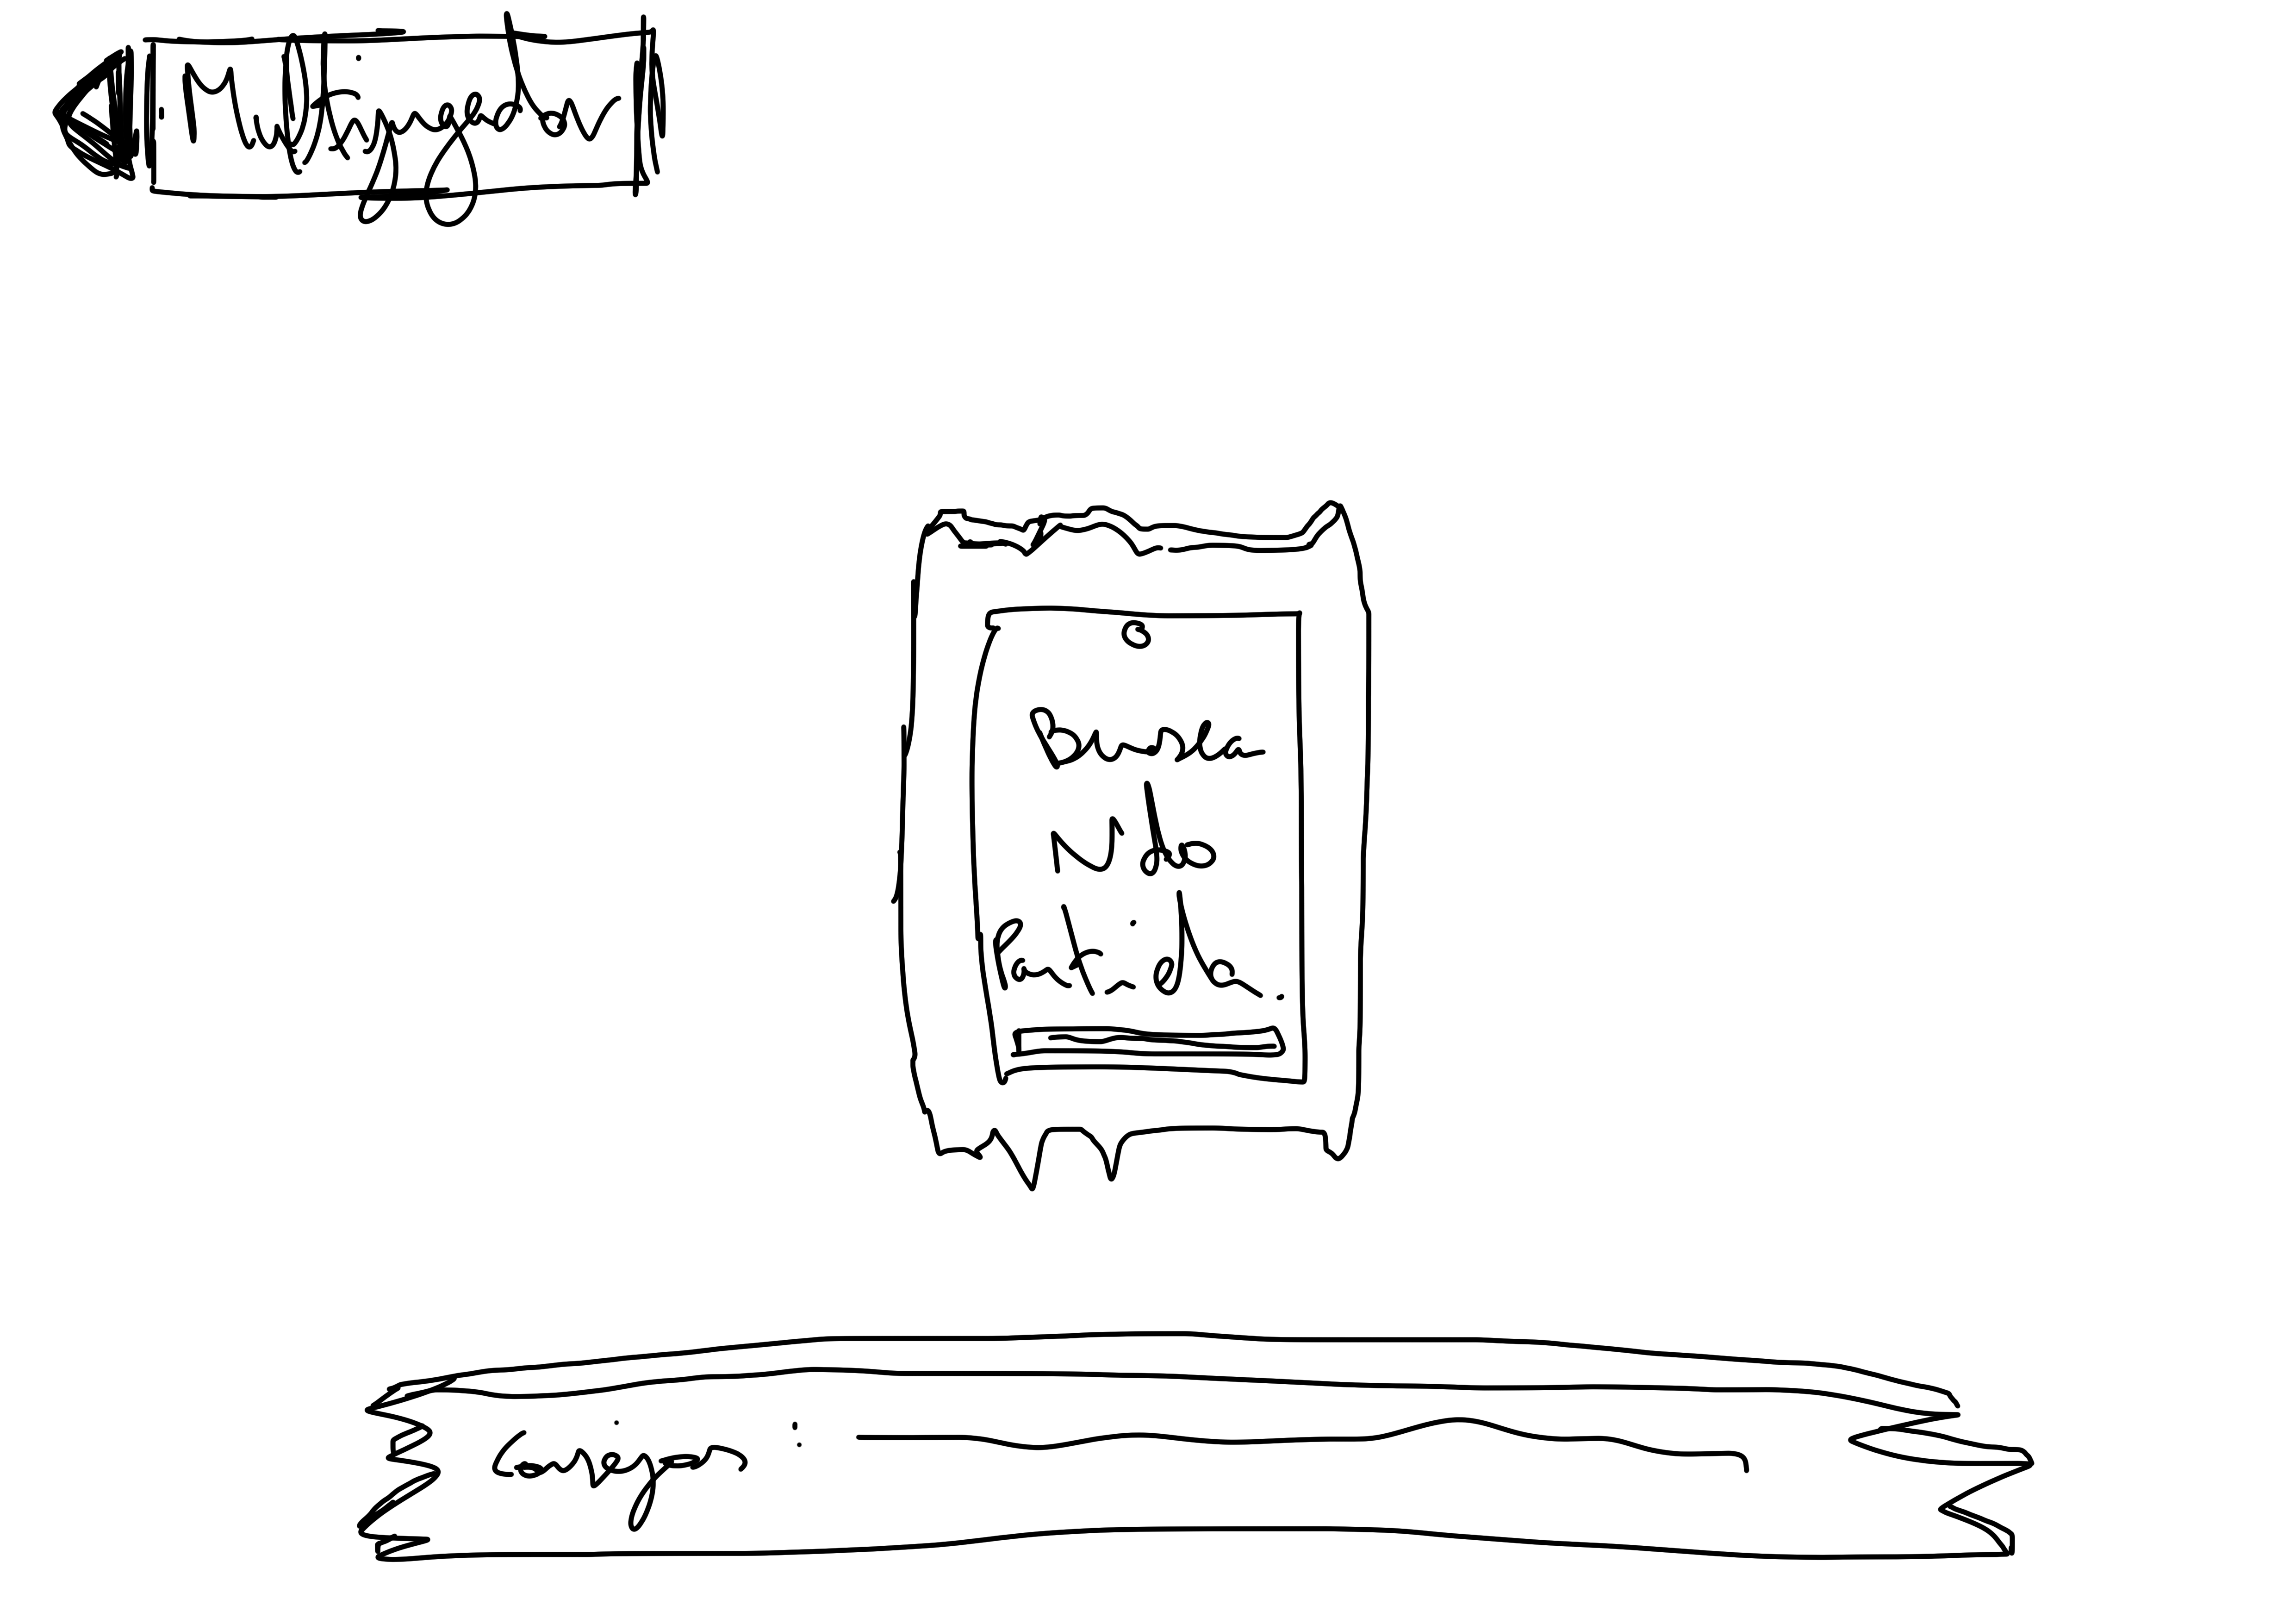 Multijugador
Busca
Ndo
Partida..
Consejos :